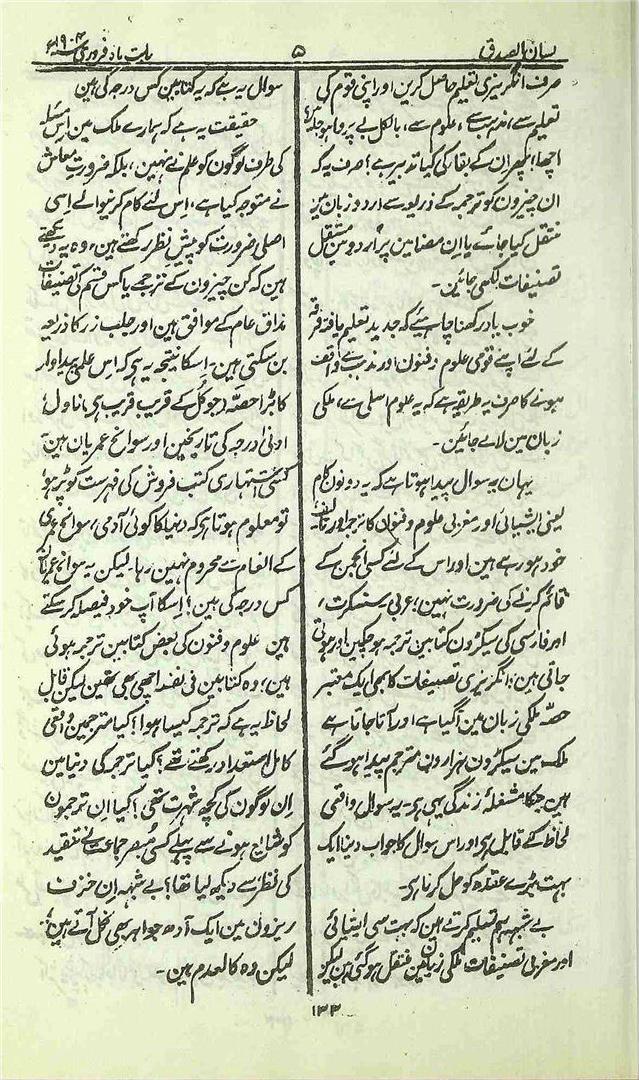 لسان الصدق
۵
بابت ماہ فروری سنہ ۱۹۰۴ء
صرف انگریزی تعلیم حاصل کرین اور اپنی قوم کی
تعلیم سے، مذہب سے، علوم سے، بالکل بے پروا ہو جائے؛
اچھا، پھر ان کے بقا کی کیا تدبیر ہے؟ صرف یہ کہ
ان چیزون کو ترجمہ کے ذریعہ سے اردو زبان مین
منتقل کیا جائے یا ان مضامین پر اردو مین مستقل
تصنیفات لکھی جائین۔
خوب یاد رکھنا چاہئے کہ جدید تعلیم یافتہ فرقہ
کے لئے اپنے قومی علوم و فنون اور مذہب سے واقف
ہونے کا صرف یہ طریقہ ہے کہ یہ علوم اصلی سے، ملکی
زبان مین لائے جائین۔
یہان یہ سوال پیدا ہوتا ہے کہ یہ دونون کام
یعنی ایشیائی اور مغربی علوم و فنون کا ترجمہ اور تالیف
خود ہو رہے ہین اور اس کے لئے کسی انجمن کے
قائم کرنے کی ضرورت نہین؛ عربی سنسکرت،
اور فارسی کی سیکڑون کتابین ترجمہ ہو چکین اور ہوتی
جاتی ہین؛ انگریزی تصنیفات کا بھی ایک معتبر
حصہ ملکی زبان مین آگیا ہے اور آتا جاتا ہے
ملک مین سیکڑون ہزارون مترجم پیدا ہو گئے
ہین جنکا مشغلۂ زندگی یہی ہی۔ یہ سوال واقعی
لحاظ کے قابل ہی اور اس سوال کا جواب دینا ایک
بہت بڑے عقدہ کو حل کرنا ہی۔
بے شبہہ ہم تسلیم کرتے ہین کہ بہت سی ایشیائی
اور مغربی تصنیفات ملکی زبان مین منتقل ہو گئی ہین لیکن
سوال یہ ہے کہ یہ کتابین کس درجہ کی ہین
حقیقت یہ ہے کہ ہمارے ملک مین اس مسئلہ
کی طرف لوگون کو علم نے نہین، بلکہ ضرورت معاش
نے متوجہ کیا ہے، اس لئے کام کرنیوالے اسی
اصلی ضرورت کو پیش نظر رکھتے ہین، وہ یہ دیکھتے
ہین کہ کن چیزون کے ترجمے یا کس قسم کی تصنیفات
مذاق عام کے موافق ہین اور جلب زر کا ذریعہ
بن سکتی ہین۔ اسکا نتیجہ یہ ہی کہ اس علمی پیداوار
کا بڑا حصہ (جو کُل کے قریب قریب ہی) ناول؛
ادنیٰ درجہ کی تاریخین اور سوانح عمریان ہین
کسی اشتہاری کتب فروش کی فہرست کو پڑھو؛
تو معلوم ہوتا ہی کہ دنیا کا کوئی آدمی، سوانح عمری
کے انعام سے محروم نہین رہا۔ لیکن یہ سوانح عمریان
کس درجہ کی ہین؟ اسکا آپ خود فیصلہ کر سکتے
ہین علوم و فنون کی بعض کتابین ترجمہ ہوئی
ہین؛ وہ کتابین فی نفسہ اچھی بھی تھین لیکن قابل
لحاظ یہ ہے کہ ترجمہ کیسا ہوا؟ کیا مترجمین واقعی
کامل استعداد رکھتے تھے؟ کیا ترجمہ کی دنیا مین
ان لوگون کی کچھ شہرت تھی؟ کیا ان ترجمون
کو شائع ہونے سے پہلے کسی مبصر جماعت نے تنقید
کی نظر سے دیکھ لیا تھا؟ بے شبہہ اِن خزف
ریزون مین ایک آدہ جواہر بھی نکل آتے ہین؛
لیکن وہ کالعدم ہین۔
۱۳۳